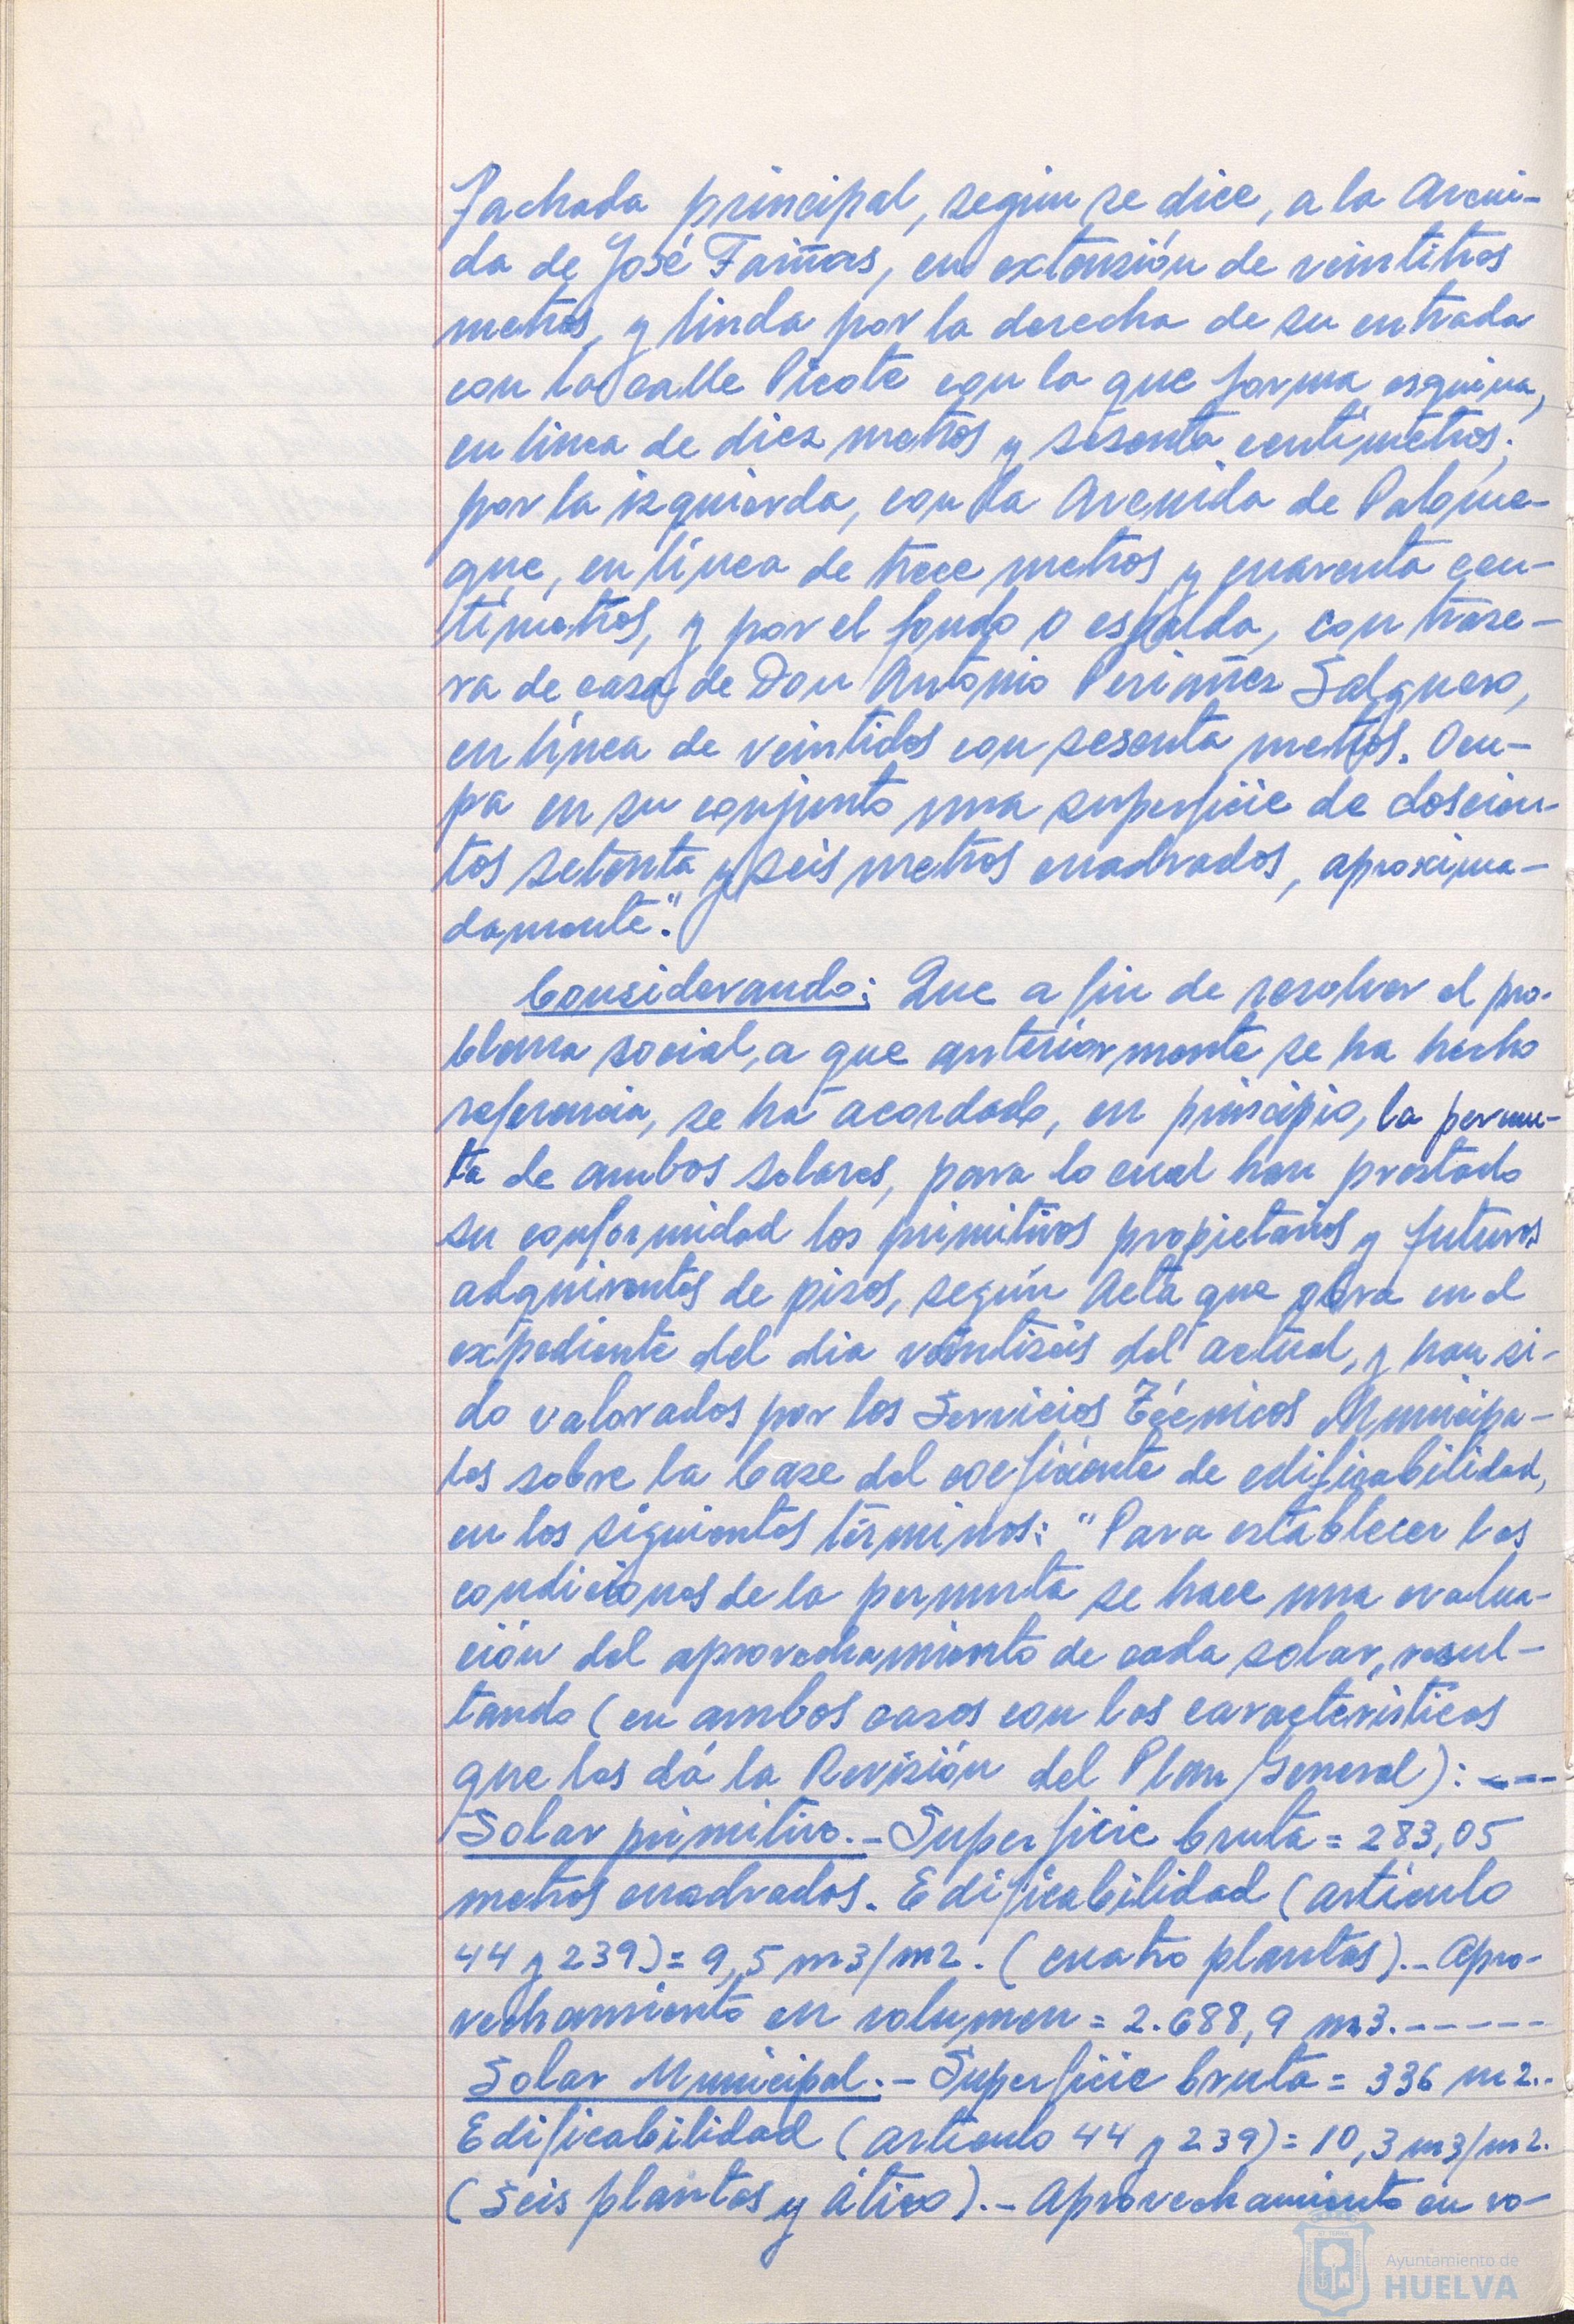 Fachada principal, según se dice, a la Aveni-
da de José Fariñas, en extensión de veintitres
metros, y linda por la derecha de su entrada
con la calle Picote con la que forma esquina,
en linea de diez metros y sesenta centimetros;
por la izquierda, con la Avenida de Palome-
que, en línea de trece metros y cuarenta cen-
timetros, y por el fondo o espalda, con trase-
ra de casa de Don Antonio Periañez Salguero,
en línea de veintidos con sesenta metros. Ocu-
pa en su conjunto una superficie de doscien-
tos setenta y seis metros cuadrados, aproxima-
damente".
Considerando: Que a fin de resolver el pro-
blema social, a que anteriormente se ha hecho
referencia, se ha acordado, en principio, la permu-
ta de ambos solares, para lo cual han prestado
su conformidad los primitivos propietarios y futuros
adquirentes de pisos, según Acta que obra en el
expediente del dia veintiseis del actual, y han si-
do valorados por los Servicios Técnicos Municipa-
les sobre la base del coeficiente de edificabilidad,
en los siguientes términos: "Para establecer las
condiciones de la permuta se hace una evalua-
ción del aprovechamiento de cada solar, resul-
tando (en ambos casos con las caracteristicas
que les dá la Revisión del Plan General): ---
Solar primitivo.- Superficie bruta = 283,05
metros cuadrados. Edificabilidad (artículo
44 y 239) = 9,5 m3/m2. (cuatro plantas).- Apro-
vechamiento en volumen = 2.688,9 m3.------
Solar Municipal.- Superficie bruta = 336 m2..
Edificabilidad (artículo 44 y 239) = 10,3 m3/m2.
(Seis plantas y ático).- Aprovechamiento en vo-
Ayuntamiento de
HUELVA